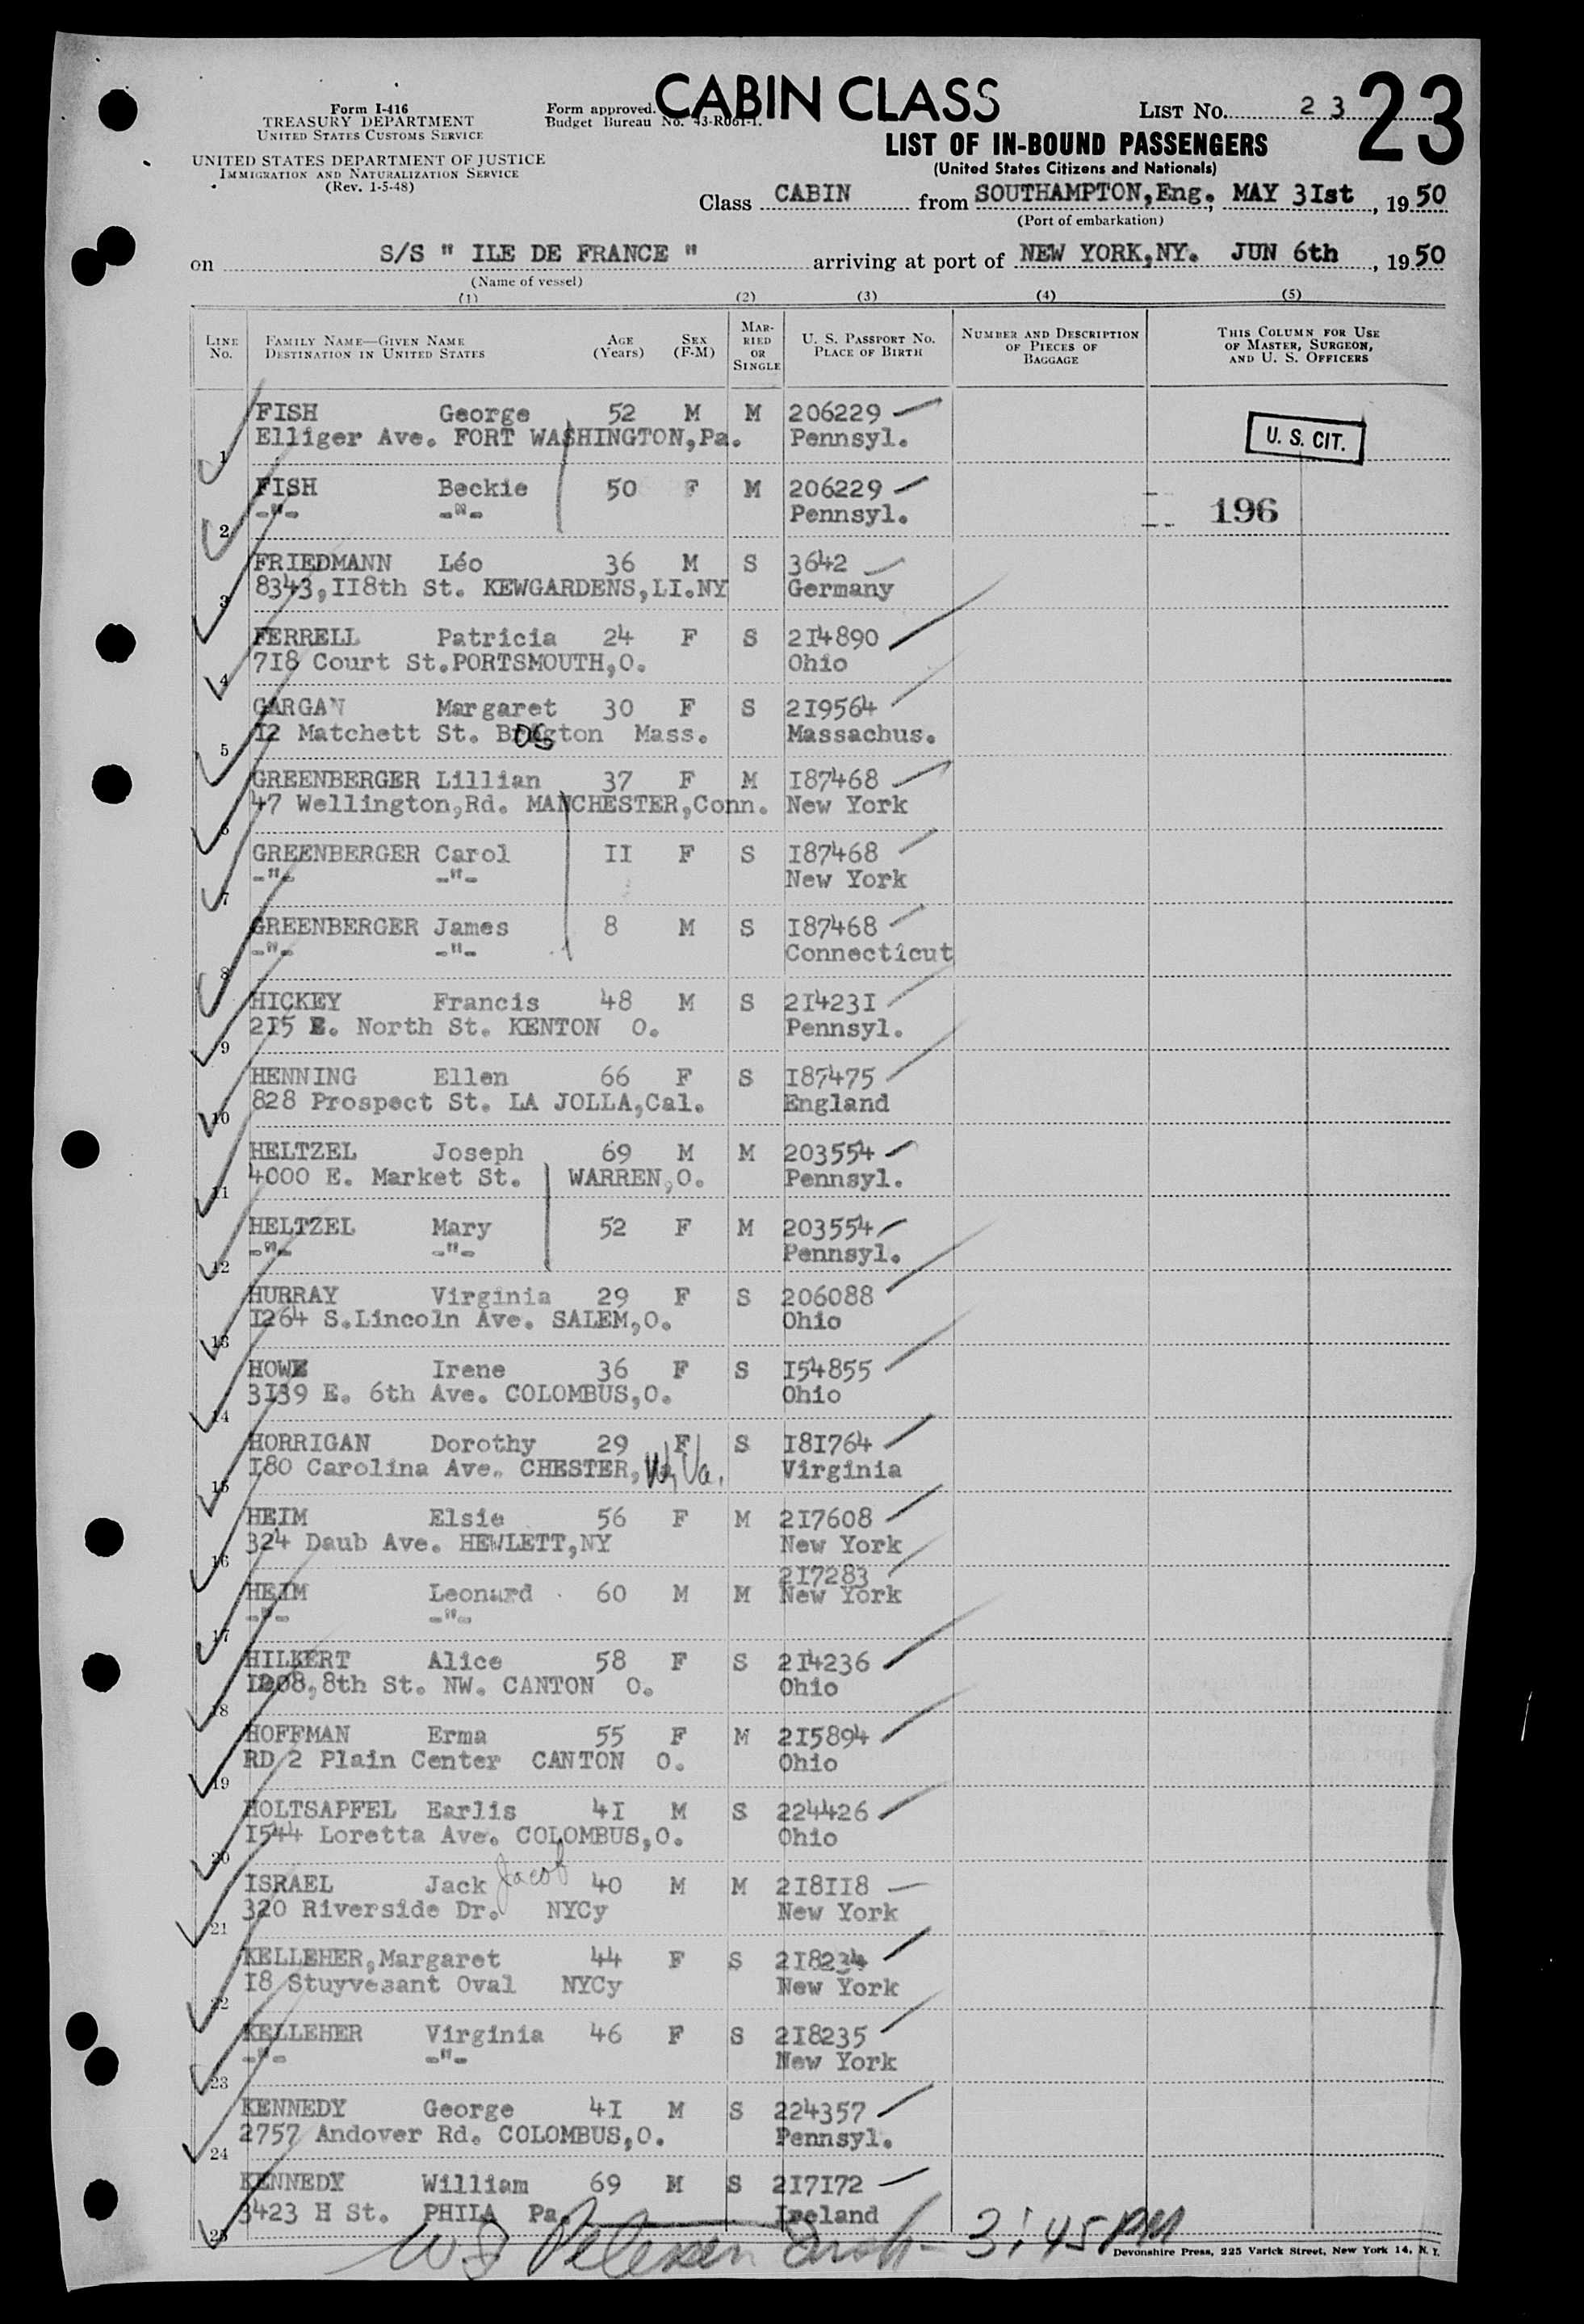 Form I-416
TREASURY DEPARTMENT
UNITED STATES CUSTOMS SERVICE
UNITED STATES DEPARTMENT OF JUSTICE
IMMIGRATION AND NATURALIZATION SERVICE
(Rev. 1-5-48)
Form approved.
Budget Bureau No. 43-R061-1.
CABIN CLASS
LIST NO. 23
23
LIST OF IN-BOUND PASSENGERS
(United States Citizens and Nationals)
Class CABIN from SOUTHAMPTON,Eng., MAY 3Ist, 1950
(Port of embarkation)
on S/S " ILE DE FRANCE " arriving at port of NEW YORK,NY. JUN 6th, 1950
(Name of vessel)
(1) (2) (3) (4) (5)
LINE No.
FAMILY NAME—GIVEN NAME
DESTINATION IN UNITED STATES
AGE (Years)
SEX (F-M)
MARRIED OR SINGLE
U. S. PASSPORT NO.
PLACE OF BIRTH
NUMBER AND DESCRIPTION OF PIECES OF BAGGAGE
THIS COLUMN FOR USE OF MASTER, SURGEON, AND U. S. OFFICERS
FISH George 52 M M 206229
1 Elliger Ave. FORT WASHINGTON,Pa. Pennsyl.
U. S. CIT.
FISH Beckie 50 F M 206229
2 -"- -"- Pennsyl.
196
FRIEDMANN Léo 36 M S 3642
3 8343,II8th St. KEWGARDENS,LI.NY Germany
FERRELL Patricia 24 F S 2I4890
4 7I8 Court St.PORTSMOUTH,O. Ohio
GARGAN Margaret 30 F S 2I9564
5 I2 Matchett St. Mass. Massachus.
GREENBERGER Lillian 37 F M I87468
6 47 Wellington,Rd. MANCHESTER,Conn. New York
GREENBERGER Carol II F S I87468
7 -"- -"- New York
GREENBERGER James 8 M S I87468
8 -"- -"- Connecticut
HICKEY Francis 48 M S 2I423I
9 2I5 E. North St. KENTON O. Pennsyl.
HENNING Ellen 66 F S I87475
10 828 Prospect St. LA JOLLA,Cal. England
HELTZEL Joseph 69 M M 203554
11 4000 E. Market St. WARREN,O. Pennsyl.
HELTZEL Mary 52 F M 203554
12 -"- -"- Pennsyl.
HURRAY Virginia 29 F S 206088
13 I264 S.Lincoln Ave. SALEM,O. Ohio
HOWE Irene 36 F S I54855
14 3I39 E. 6th Ave. COLOMBUS,O. Ohio
HORRIGAN Dorothy 29 F S I8I764
15 I80 Carolina Ave. CHESTER, W, Va. Virginia
HEIM Elsie 56 F M 2I7608
16 324 Daub Ave. HEWLETT,NY New York
2I7283
HEIM Leonard 60 M M New York
17 -"- -"-
HILKERT Alice 58 F S 2I4236
18 I208,8th St. NW. CANTON O. Ohio
HOFFMAN Erma 55 F M 2I5894
19 RD 2 Plain Center CANTON O. Ohio
HOLTSAPFEL Earlis 4I M S 224426
20 I544 Loretta Ave. COLOMBUS,O. Ohio
ISRAEL Jack Jacob 40 M M 2I8II8
21 320 Riverside Dr. NYCy New York
KELLEHER,Margaret 44 F S 2I8234
22 I8 Stuyvesant Oval NYCy New York
KELLEHER Virginia 46 F S 2I8235
23 -"- -"- New York
KENNEDY George 4I M S 224357
24 2757 Andover Rd. COLOMBUS,O. Pennsyl.
KENNEDY William 69 M S 2I7I72
25 3423 H St. PHILA Pa Ireland
3:45 PM
Devonshire Press, 225 Varick Street, New York 14, N. Y.